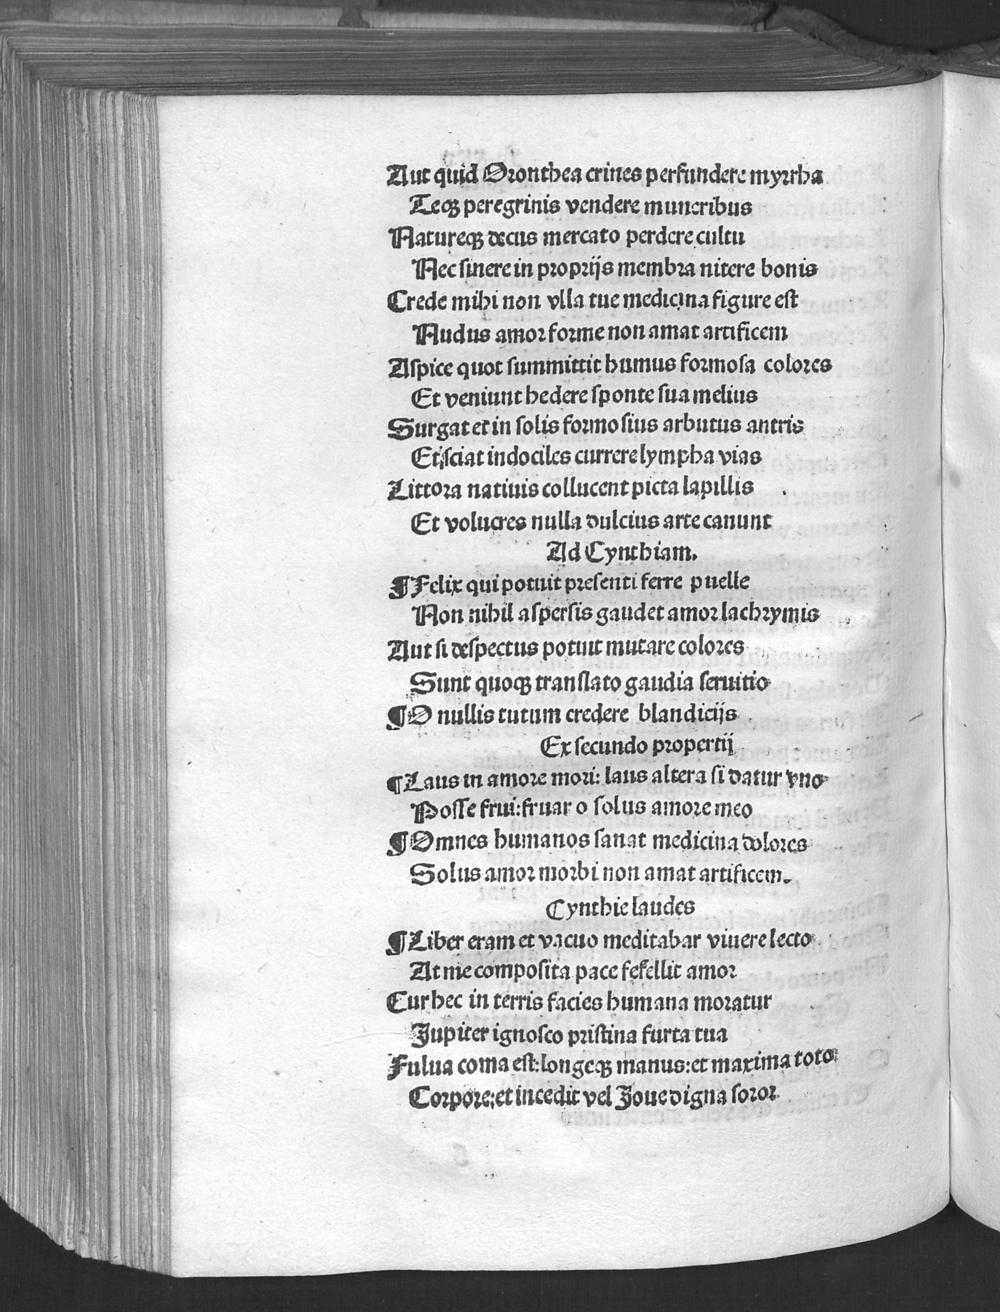 Aut quid Oronthea crines perfundere myrrha
Teqꝫ peregrinis vendere muneribus
Natureqꝫ decus mercato perdere cultu
Nec sinere in proprijs membra nitere bonis
Crede mihi non vlla tue medicina figure est
Nudus amor forme non amat artificem
Aspice quot summittit humus formosa colores
Et veniunt hedere sponte sua melius
Surgat et in solis formosius arbutus antris
Et sciat indociles currere lympha vias
Littora natiuis collucent picta lapillis
Et volucres nulla dulcius arte canunt
Ad Cynthiam.
¶Felix qui potuit presenti ferre puelle
Non nihil aspersis gaudet amor lachrymis
Aut si despectus potuit mutare colores
Sunt quoqꝫ translato gaudia seruitio
¶O nullis tutum credere blandicijs
Ex secundo propertij
¶Laus in amore mori: laus altera si datur vno
Posse frui: fruar o solus amore meo
¶Omnes humanos sanat medicina dolores
Solus amor morbi non amat artificem.
Cynthie laudes
¶Liber eram et vacuo meditabar viuere lecto
At me composita pace fefellit amor
Cur hec in terris facies humana moratur
Jupiter ignosco pristina furta tua
Fulua coma est: longeqꝫ manus: et maxima toto
Corpore: et incedit vel Joue digna soror